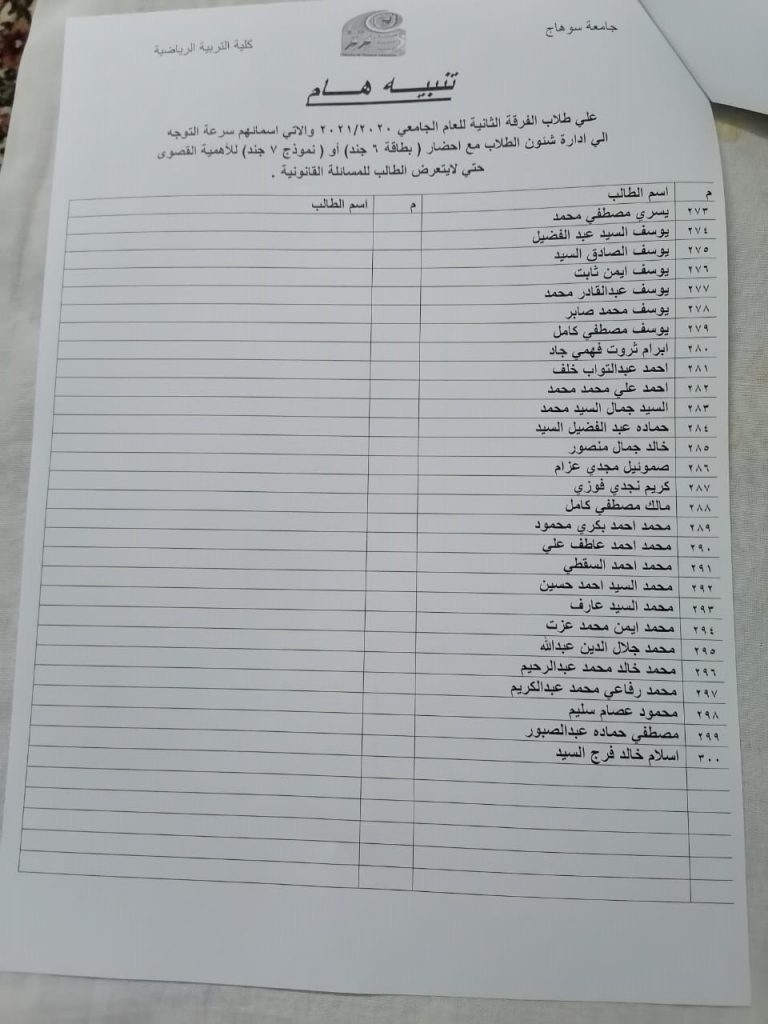 جامعة سوهاج
كلية التربية الرياضية
تنبيه هام
علي طلاب الفرقة الثانية للعام الجامعي ٢٠٢١/٢٠٢٠ والاتي اسمائهم سرعة التوجه
الي ادارة شئون الطلاب مع احضار ( بطاقة ٦ جند) أو ( نموذج ٧ جند) للأهمية القصوى
حتي لايتعرض الطالب للمسائلة القانونية .
م اسم الطالب م اسم الطالب
٢٧٣ يسري مصطفي محمد
٢٧٤ يوسف السيد عبد الفضيل
٢٧٥ يوسف الصادق السيد
٢٧٦ يوسف ايمن ثابت
٢٧٧ يوسف عبدالقادر محمد
٢٧٨ يوسف محمد صابر
٢٧٩ يوسف مصطفي كامل
٢٨٠ ابرام ثروت فهمي جاد
٢٨١ احمد عبدالتواب خلف
٢٨٢ احمد علي محمد محمد
٢٨٣ السيد جمال السيد محمد
٢٨٤ حماده عبد الفضيل السيد
٢٨٥ خالد جمال منصور
٢٨٦ صموئيل مجدي عزام
٢٨٧ كريم نجدي فوزي
٢٨٨ مالك مصطفي كامل
٢٨٩ محمد احمد بكري محمود
٢٩٠ محمد احمد عاطف علي
٢٩١ محمد احمد السقطي
٢٩٢ محمد السيد احمد حسين
٢٩٣ محمد السيد عارف
٢٩٤ محمد ايمن محمد عزت
٢٩٥ محمد جلال الدين عبدالله
٢٩٦ محمد خالد محمد عبدالرحيم
٢٩٧ محمد رفاعي محمد عبدالكريم
٢٩٨ محمود عصام سليم
٢٩٩ مصطفي حماده عبدالصبور
٣٠٠ اسلام خالد فرج السيد